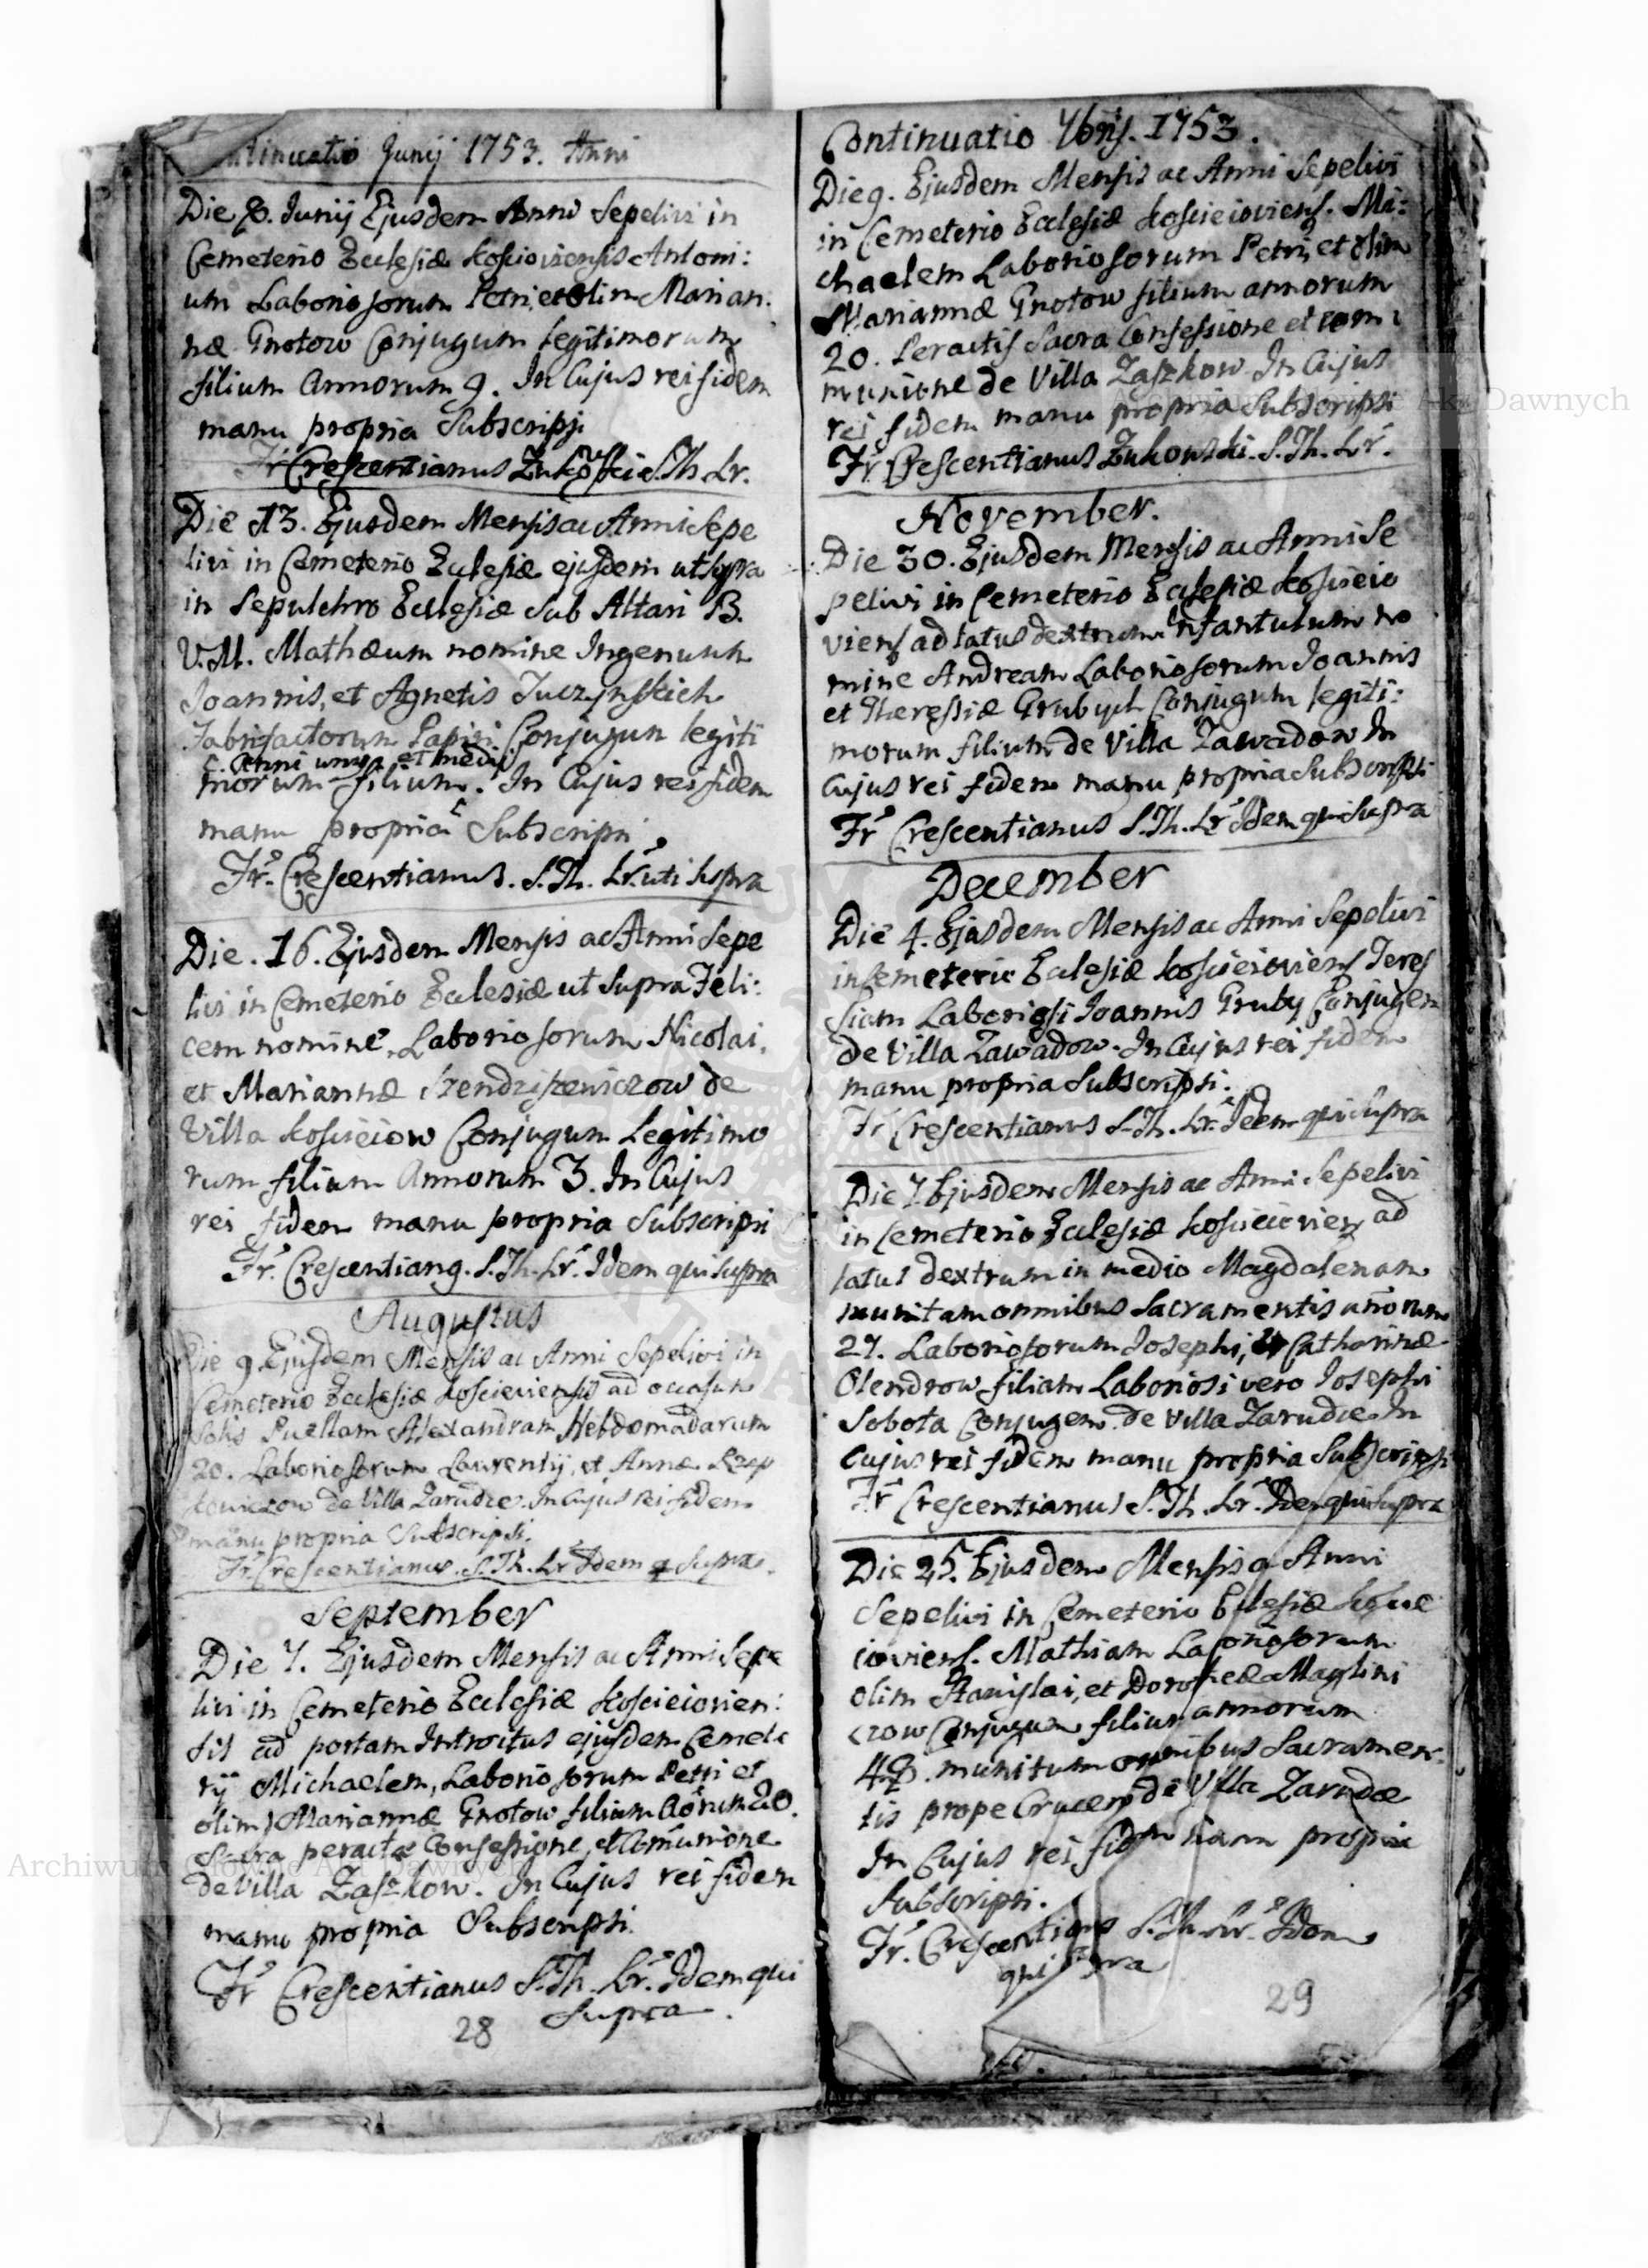 Continuatio Junij 1753. Anni
Die 8. Junij Ejusdem Anni Sepelivi in
Cemeterio Ecclesiæ Kosciowiensis Antoni:
um Laboriosorum Petri, et olim Marian:
næ Gnotow Conjugum legitimorum
filium Annorum 9. In Cujus rei fidem
manu propria Subscripsi
Fr Crescentianus Zukowski S. Th. Lr.
Die 13. Ejusdem Mensis ac Anni Sepe
livi in Cemeterio Eclesiæ ejusdem ut supra
in Sepulchro Ecclesiæ Sub Altari B.
V. M. Mathæum nomine Ingenuum
Joannis, et Agnetis Juczynskich
Fabrifactorum Papiri Conjugun legiti
Anni unius et medij
morum filium. In Cujus rei fidem
manu propria Subscripsi
Fr. Crescentianus. S. Th. Lr. uti supra
Die. 16. Ejusdem Mensis ac Anni Sepe
livi in Cemeterio Ecclesiæ ut Supra Feli:
cem nomine, Laboriosorum Nicolai,
et Mariannæ Szendziszewiczow de
Villa Kosieciow Conjugum Legitimo
rum filium Annorum 3. In Cujus
rei fidem manu propria Subscripsi
Fr. Crescentiang. S. Th. Lr. Idem qui supra
Augustus
Die 9 Ejusdem Mensis ac Anni Sepelivi in
Cemeterio Ecclesiæ Koscieviensis ad occasum
Solis Puellam Alexandram Hebdomadarum
20. Laboriosorum Laurentij, et Annæ Rzep
kowiczow de Villa Zarudze. In Cujus rei fidem
manu propria Subscripsi.
Fr. Crescentianus. S. Th. Lr Idem q Supra.
September
Die 7. Ejusdem Mensis ac Anni Sepe
livi in Cemeterio Ecclesiæ Koscieiovien:
sis ad portam Introitus ejusdem Cemete
rij Michaelem, Laboriosorum Petri et
olim Mariannæ Gnotow filium Aõrum 20.
Sacra peracta Confessione, et Com̃unione
de Villa Zaszkow. In Cujus rei fidem
manu propria Subscripsi
Fr Crescentianus S. Th. Lr. Idem qui
Supra.
28
Continuatio 7bris. 1753.
Die 9. Ejusdem Mensis ac Anni Sepelivi
in Cemeterio Ecclesiæ Koscieioviens. Mi:
chaelem Laboriosorum Petri, et olim
Mariannæ Gnotow filium annorum
20. Peractis Sacra Confessione et com:
munione de Villa Zaszkow. In Cujus
rei fidem manu propria Subscripsi
Fr. Crescentianus Zukowski. S. Th. Lr.
November.
Die 30. Ejusdem Mensis ac Anni Se
pelivi in Cemeterio Ecclesiæ Koscieio
viens ad latus dextrum Infantulum no
mine Andream Laboriosorum Joannis
et Theressiæ Grubych Conjugum legiti:
morum filium de Villa Zawadow In
Cujus rei fidem manu propria Subscripsi
Fr Crescentianus S. Th. Lr Idem qui Supra
December
Die 4. Ejusdem Mensis ac Anni Sepelivi
in Cemeterio Ecclesiæ Koscieioviens Teres
siam Laboriosi Joannis Gruby Conjugem
de Villa Zawadow. In Cujus rei fidem
manu propria Subscripsi.
Fr Crescentianus S. Th. Lr. Idem qui Supra
Die 7 Ejusdem Mensis ac Anni Sepelivi
in Cemeterio Ecclesiæ Koscieiovien ad
latus dextrum in medio Magdalenam
munitam omnibus Sacramentis añorum
27. Laboriosorum Josephi, et Catharinæ
Olendrow filiam Laboriosi vero Josephi
Sobota Conjugem de Villa Zarudze In
Cujus rei fidem manu propria Subscripsi
Fr Crescentianus S. Th. Lr. Idem qui Supra
Die 25. Ejusdem Mensis a Anni
Sepelivi in Cemeterio Eclesiæ
ioviens. Mathiam Laboriosorum
olim Stanislai, et Dorotheæ
czow Conjugum filium annorum
munitum omnibus Sacramen:
tis prope Crucem de Villa Zarudze
In Cujus rei fidem manu propria
Subscripsi.
Fr. Crescentianus S. Th. Lr. Idem
qui supra
29
Archiwum Główne Akt Dawnych
Archiwum Główne Akt Dawnych